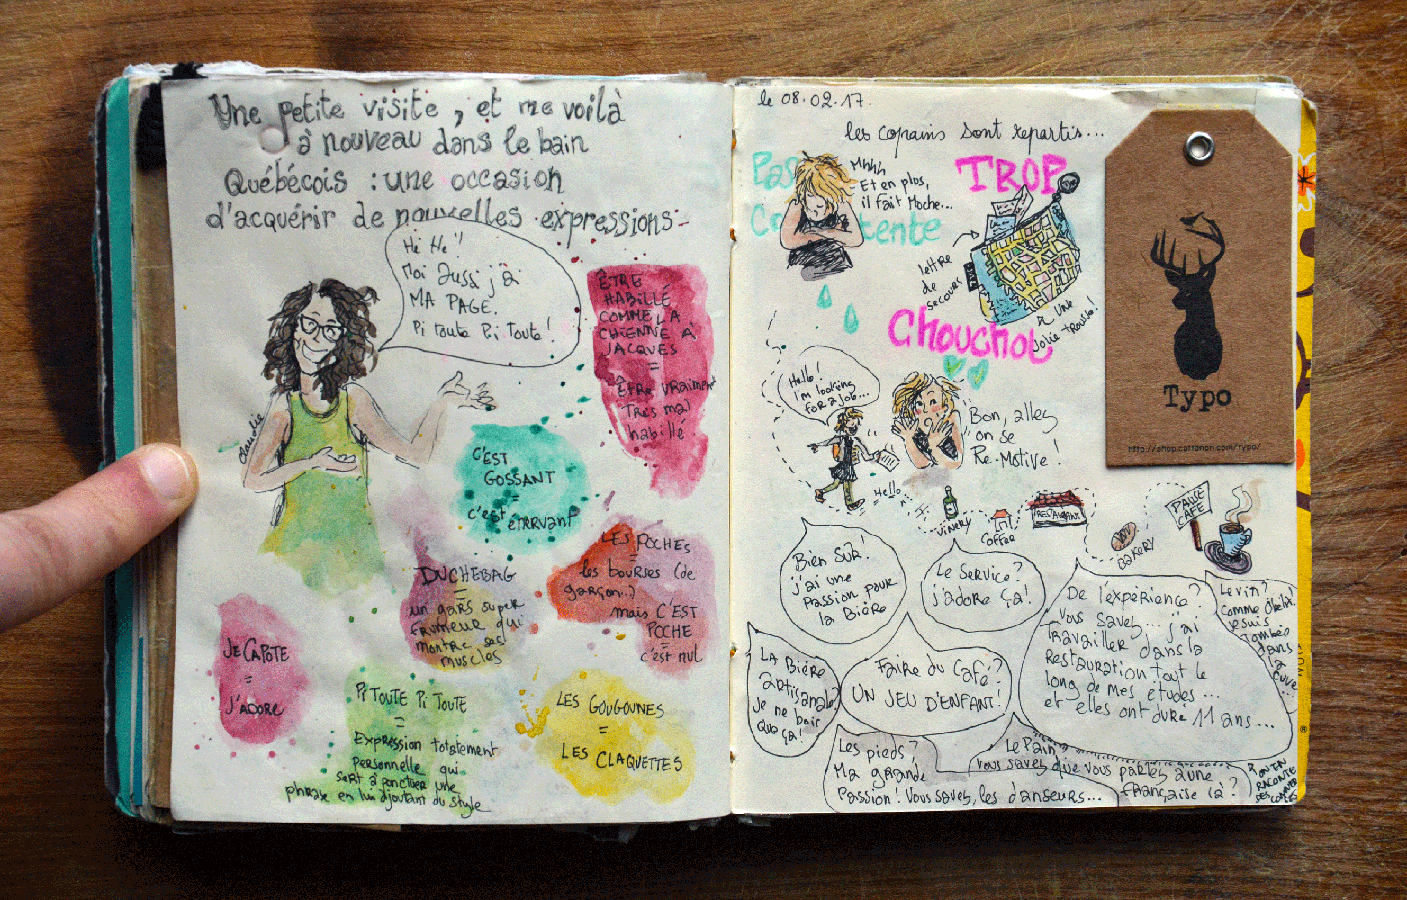 Une petite visite, et me voilà
à nouveau dans le bain
Québécois : une occasion
d'acquérir de nouvelles expressions.
Hé He !!
Moi Aussi j'ai
MA PAGE.
Pi toute Pi Toute !
Claudie
ÊTRE
HABILLÉ
COMME LA
CHIENNE À
JACQUES
=
ÊTRE vraiment
Très mal
habillé
C'EST
GOSSANT
=
c'est énervant
LES POCHES
=
les bourses (de
garçon..)
mais C'EST
POCHE
=
c'est nul
DUCHEBAG
=
un gars super
frimeur qui
montre ses
muscles
JE CAPOTE
=
J'ADORE
PI TOUTE PI TOUTE
=
Expression totalement
personnelle qui
sert à ponctuer une
phrase en lui ajoutant du style
LES GOUGOUNES
=
LES CLAQUETTES
le 08.02.17.
les copains sont repartis...
Pas
Contente
Mhhh
Et en plus,
il fait Moche...
TROP
Chouchou
lettre
de
secours
& une
Jolie trousse!
Typo
http://shop.cottonon.com/typo/
Hello!
I'm looking
FOR a job...
Hello..
Bon, allez
on se
Re-Motive !
WINERY
Coffee
RESTAURANT
BAKERY
PAUSE
CAFE
Bien Sûr!
j'ai une
passion pour
la Bière
Le Service?
j'adore ça!
De l'expérience?
Vous savez... j'ai
travailler dans la
Restauration tout le
long de mes études...
et elles ont duré 11 ans...
Le vin?
Comme Obélix,
je suis
Tombée
dans
la
cuve..
LA Bière
artisanale?
Je ne bois
que ça!
Faire du Café?
UN JEU D'ENFANT!
Les pieds?
Ma grande
Passion! Vous savez, les danseurs...
Le Pain?
Vous savez que vous parlez à une
française là?
ON EN
RACONTE
DES